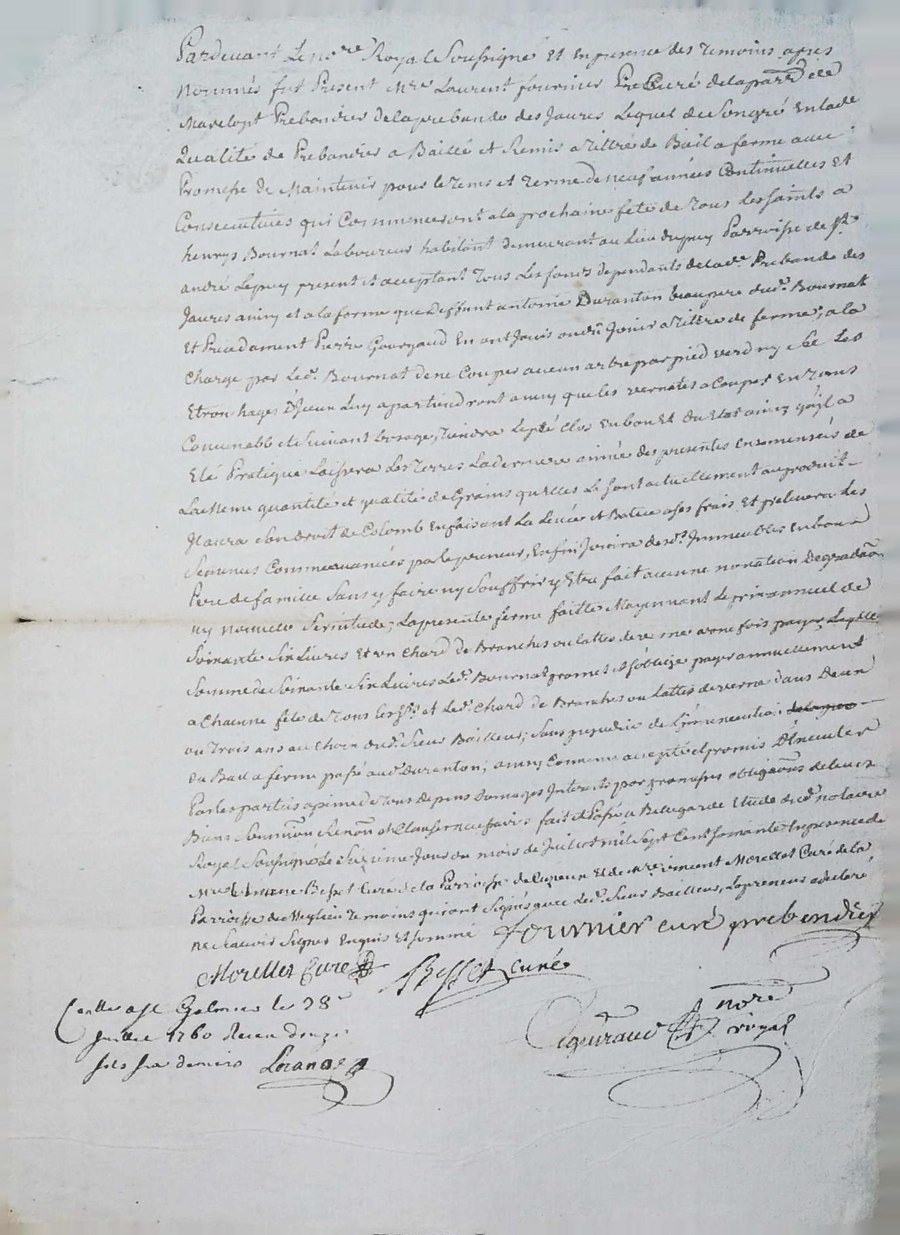 Pardevant Le nore Royal Soussigné Et en presence des temoins apres
nommés fut Present Mre Laurent fournier Pre Curé de la parre de
Marelopt Prebandier de la prebande des Jaures Lequel de Son gré En lade
Qualité de Prebandier a Baillé et Remis a tiltre de Bail a ferme avec
Promesse de Maintenir pour le tems et terme de neuf années Continuelles Et
Consecutives qui Commenceront a la prochaine fete de tous Les saints a
henrys Bournat Laboureur habitant demeurant au Lieu dupuy Parroisse de St
andré Lepuy present et acceptant tous Les fonds dependants de lade Prebande des
Jaures ainsy et a la forme que deffunt antoine Duranton beaupere dud. Bournat
Et Precedament Pierre Gouryaud En ont Jouis ou du Jouir a tiltre de ferme, a la
Charge par led. Bournat de ne Couper aucun arbre par pied verd ny Sec Les
Etronchages D'iceux Luy apartiendront ainsy que les vernes a Couper En tems
Convenable et Suivant Lusage, tiendra Le pré Clos En bon Et du Etat ainsy qu'il a
Eté Pratiqué Laissera Les terres La derniere année des presentes Ensemensés de
La meme quantité et qualité de Grains quelles Le Sont actuellement au produit
Il aura Son droit de Colomb En faisant La Levée et Battue a ses frais Et prelevera Les
Semences Commencées par le preneur, En fin Jouira desd. Immeubles En bon
Pere de famille Sans y faire ny Souffrir y Etre fait aucune novation Degradaon
ny nouvelle Servitude, La presente ferme faitte Moyennant Le prix annuel de
Soixante Six Livres Et un Chard de Branches ou lattes de verne a une fois payer, Laqelle
Somme de Soixante Six Livres Led. Bournat promet et s'oblige payer annuellement
a Chacune fête de Tous Les Sts et Led. Chard de Branches ou Lattes de verne dans Deux
ou Trois ans au Choix dud. Sieur Bailleur, Sans prejudice de L'execution
du Bail a ferme passé aud. Duranton, ainsy Convenu accepté et promis D'Executer
Par les parties a peine de tous depens Domages Interets par Promesses obligaons de Leurs
Biens Soumon Renon et Clauses ne faires fait et Passé a Bellegarde Etude dud. notaire
Royal Soussigné Le Seizieme Jour du mois de Juillet mil Sept Cent Soixante En presence de
Mre Etienne Bisset Curé de la Parroisse de Et de Mre vincent Morellet Curé de la
Parroisse de Meylieu temoins qui ont Signés avec Led. Sieur Bailleur, Le preneur a declaré
ne Scavoir Signer Enquis Et Sommé fournier curé prebendier
Morellet Curé Bisset curé
Conllé a St Galmier le 28e nore
Juillet 1760 Receu Douze royal
sols six deniers